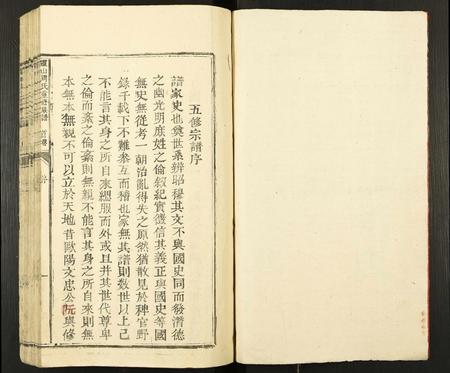 五修宗譜序
譜家史也奠世系辨昭穆其文不與國史同而發潛德
之幽光明庶姓之倫敘紀實徵信其義正與國史等國
無史無從考一朝治亂得失之原然猶散見於稗官野
錄千載下不難參互而稽也家無其譜則數世以上已
不能言其身之所自來緦服而外或且并其世代尊卑
之倫而紊之倫紊則無親不能言其身之所自來則無
本無本無親不可以立於天地昔歐陽文忠公阮與修